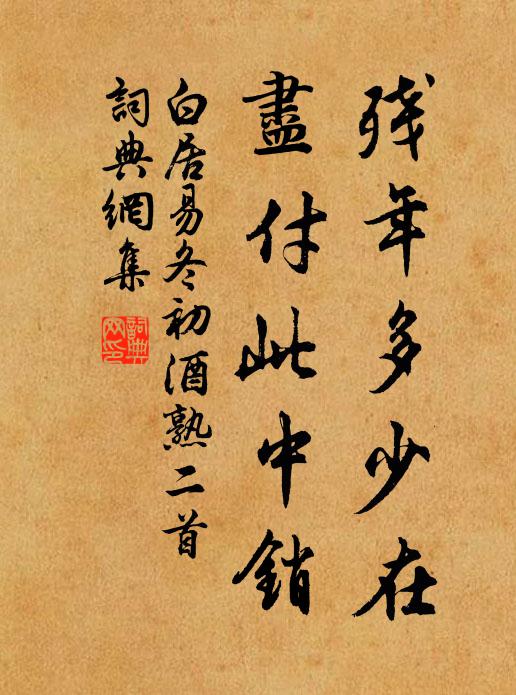 殘年多少在
盡付此中銷
白居易冬初酒熟二首
詞典網集
詞典網印